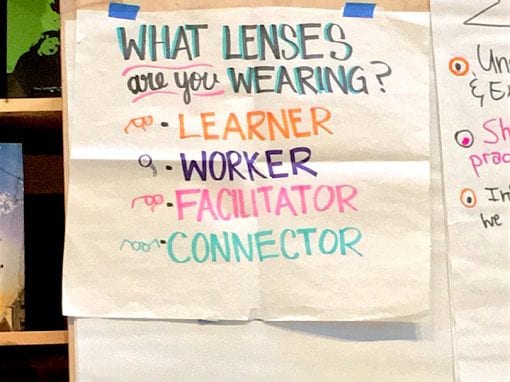 WHAT LENSES
are you WEARING?
LEARNER
WORKER
FACILITATOR
CONNECTOR
& E
Sh
prac
we